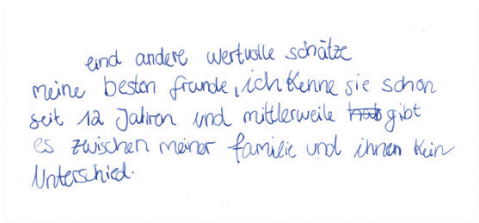 eind andere wertvolle schätze
meine besten freunde, ich kenne sie schon
seit 12 Jahren und mittlerweile gibt
es zwischen meiner familie und ihnen kein
Unterschied.